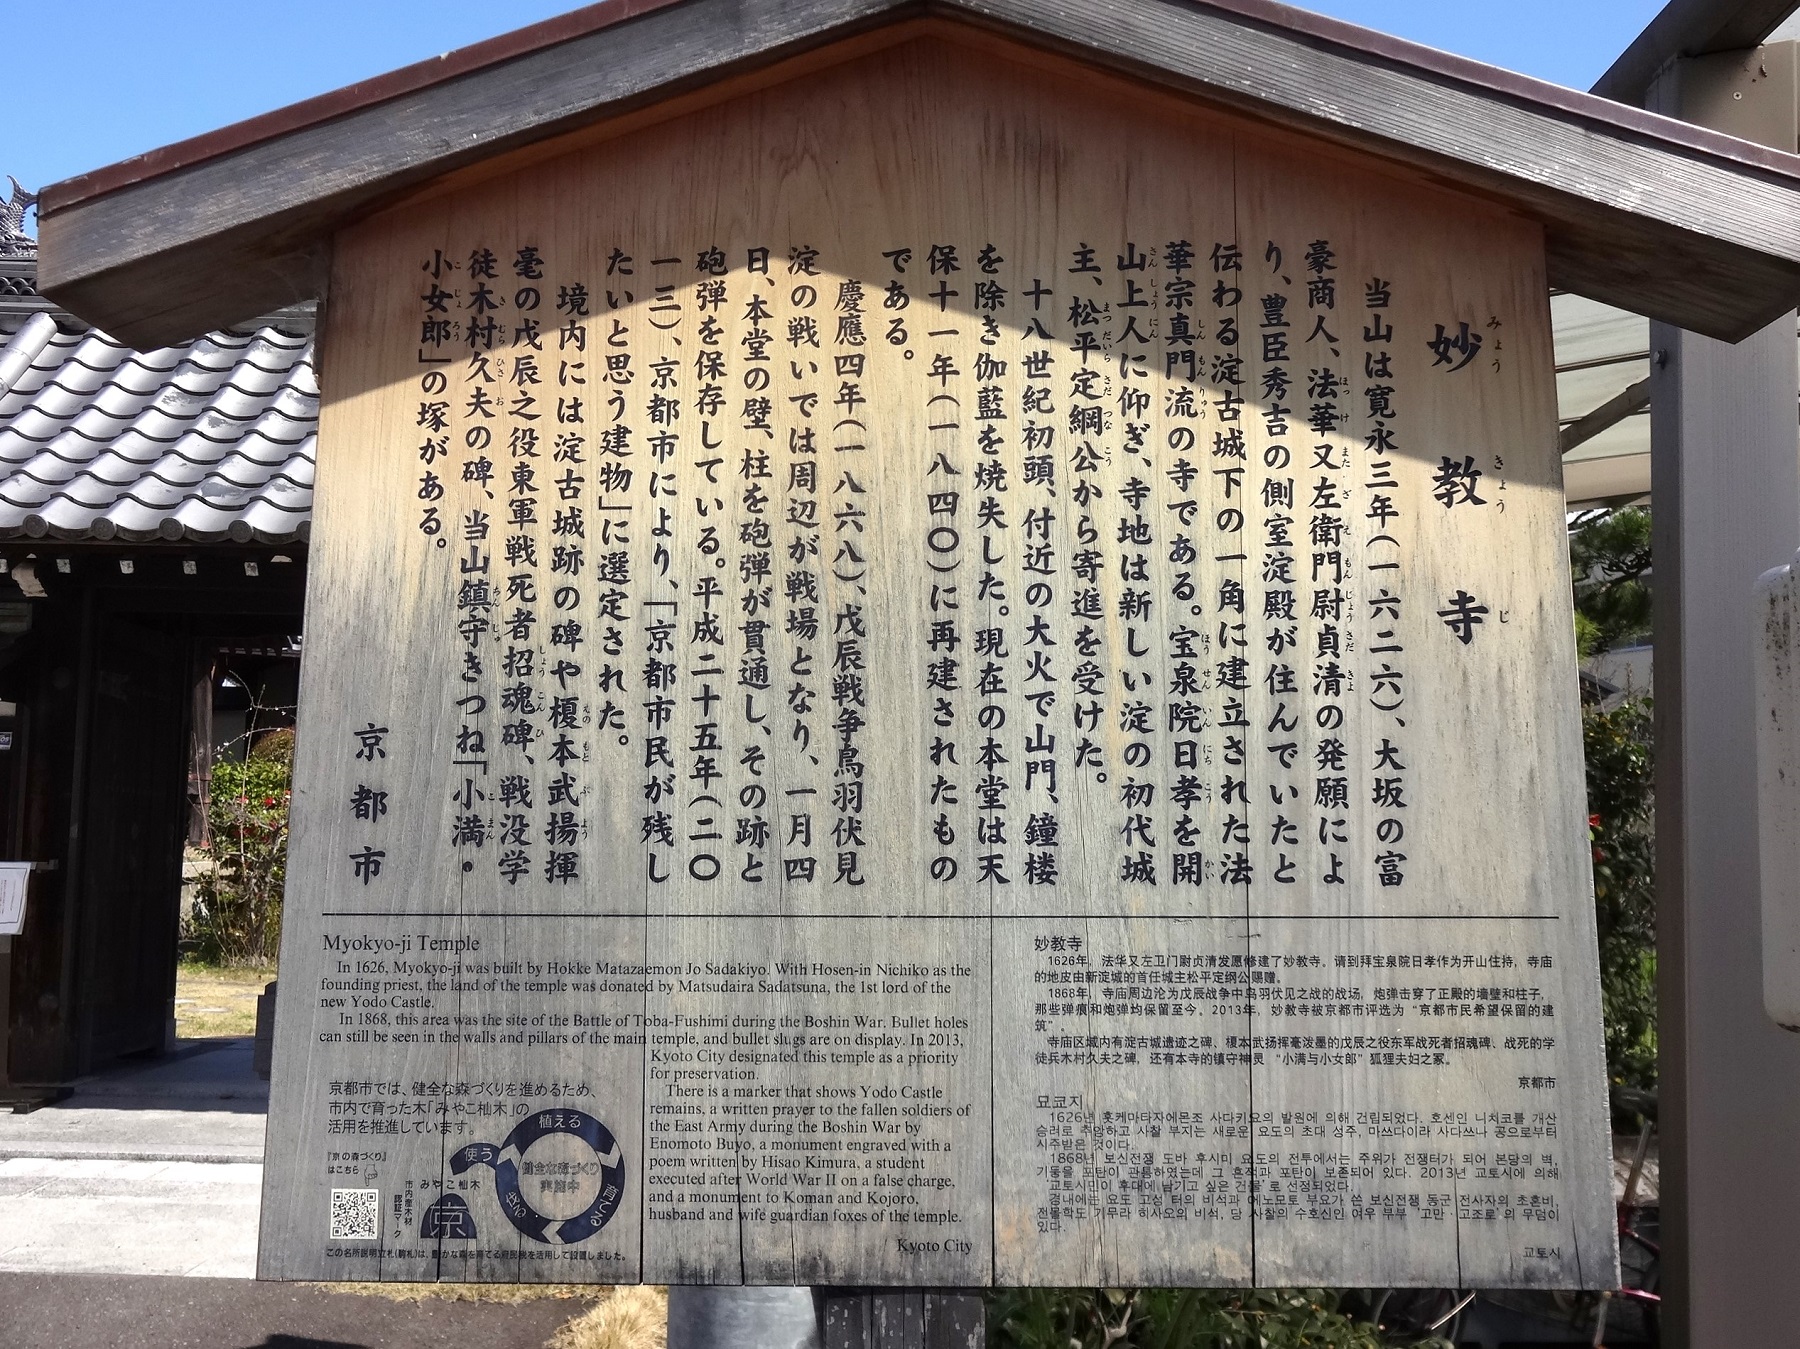 妙教寺
当山は寛永三年(一六二六)、大坂の富
豪商人、法華又左衛門尉貞清の発願によ
り、豊臣秀吉の側室淀殿が住んでいたと
伝わる淀古城下の一角に建立された法
華宗真門流の寺である。宝泉院日孝を開
山上人に仰ぎ、寺地は新しい淀の初代城
主、松平定綱公から寄進を受けた。
十八世紀初頭、付近の大火で山門、鐘楼
を除き伽藍を焼失した。現在の本堂は天
保十一年(一八四〇)に再建されたもの
である。
慶應四年(一八六八)、戊辰戦争鳥羽伏見
淀の戦いでは周辺が戦場となり、一月四
日、本堂の壁、柱を砲弾が貫通し、その跡と
砲弾を保存している。平成二十五年(二〇
一三)、京都市により、「京都市民が残し
たいと思う建物」に選定された。
境内には淀古城跡の碑や榎本武揚揮
毫の戊辰之役東軍戦死者招魂碑、戦没学
徒木村久夫の碑、当山鎮守きつね「小満・
小女郎」の塚がある。
京都市
Myokyo-ji Temple
In 1626, Myokyo-ji was built by Hokke Matazaemon Jo Sadakiyo. With Hosen-in Nichiko as the
founding priest, the land of the temple was donated by Matsudaira Sadatsuna, the 1st lord of the
new Yodo Castle.
In 1868, this area was the site of the Battle of Toba-Fushimi during the Boshin War. Bullet holes
can still be seen in the walls and pillars of the main temple, and bullet slugs are on display. In 2013,
Kyoto City designated this temple as a priority
for preservation.
There is a marker that shows Yodo Castle
remains, a written prayer to the fallen soldiers of
the East Army during the Boshin War by
Enomoto Buyo, a monument engraved with a
poem written by Hisao Kimura, a student
executed after World War II on a false charge,
and a monument to Koman and Kojoro,
husband and wife guardian foxes of the temple.
Kyoto City
京都市では、健全な森づくりを進めるため、
市内で育った木「みやこ杣木」の
活用を推進しています。
『京の森づくり』
はこちら
みやこ杣木
市内産木材
認証マーク
京
植える
育てる
伐る
使う
健全な森づくり
実施中
この名所説明立札(駒札)は、豊かな森を育てる府民税を活用して設置しました。
妙教寺
1626年，法华又左卫门尉贞清发愿修建了妙教寺。请到拜宝泉院日孝作为开山住持，寺庙
的地皮由新淀城的首任城主松平定纲公赐赠。
1868年，寺庙周边沦为戊辰战争中鸟羽伏见之战的战场，炮弹击穿了正殿的墙壁和柱子，
那些弹痕和炮弹均保留至今。2013年，妙教寺被京都市评选为“京都市民希望保留的建
筑”。
寺庙区域内有淀古城遗迹之碑、榎本武扬挥毫泼墨的戊辰之役东军战死者招魂碑、战死的学
徒兵木村久夫之碑，还有本寺的镇守神灵“小满与小女郎”狐狸夫妇之冢。
京都市
묘쿄지
1626년 홋케마타자에몬조 사다키요의 발원에 의해 건립되었다. 호센인 니치코를 개산
승려로 추앙하고 사찰 부지는 새로운 요도의 초대 성주, 마쓰다이라 사다쓰나 공으로부터
시주받은 것이다.
1868년 보신전쟁 도바 후시미 요도의 전투에서는 주위가 전쟁터가 되어 본당의 벽,
기둥을 포탄이 관통하였는데 그 흔적과 포탄이 보존되어 있다. 2013년 교토시에 의해
'교토시민이 후대에 남기고 싶은 건물'로 선정되었다.
경내에는 요도 고성 터의 비석과 에노모토 부요가 쓴 보신전쟁 동군 전사자의 초혼비,
전몰학도 기무라 히사오의 비석, 당 사찰의 수호신인 여우 부부 '고만·고조로'의 무덤이
있다.
교토시